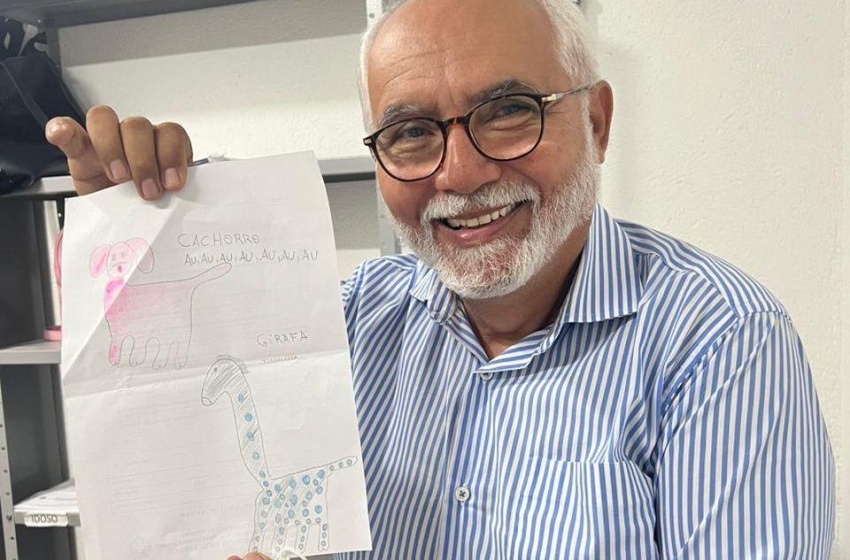 CACHORRO
AU, AU, AU, AU, AU, AU, AU
GIRAFA
IDOSO